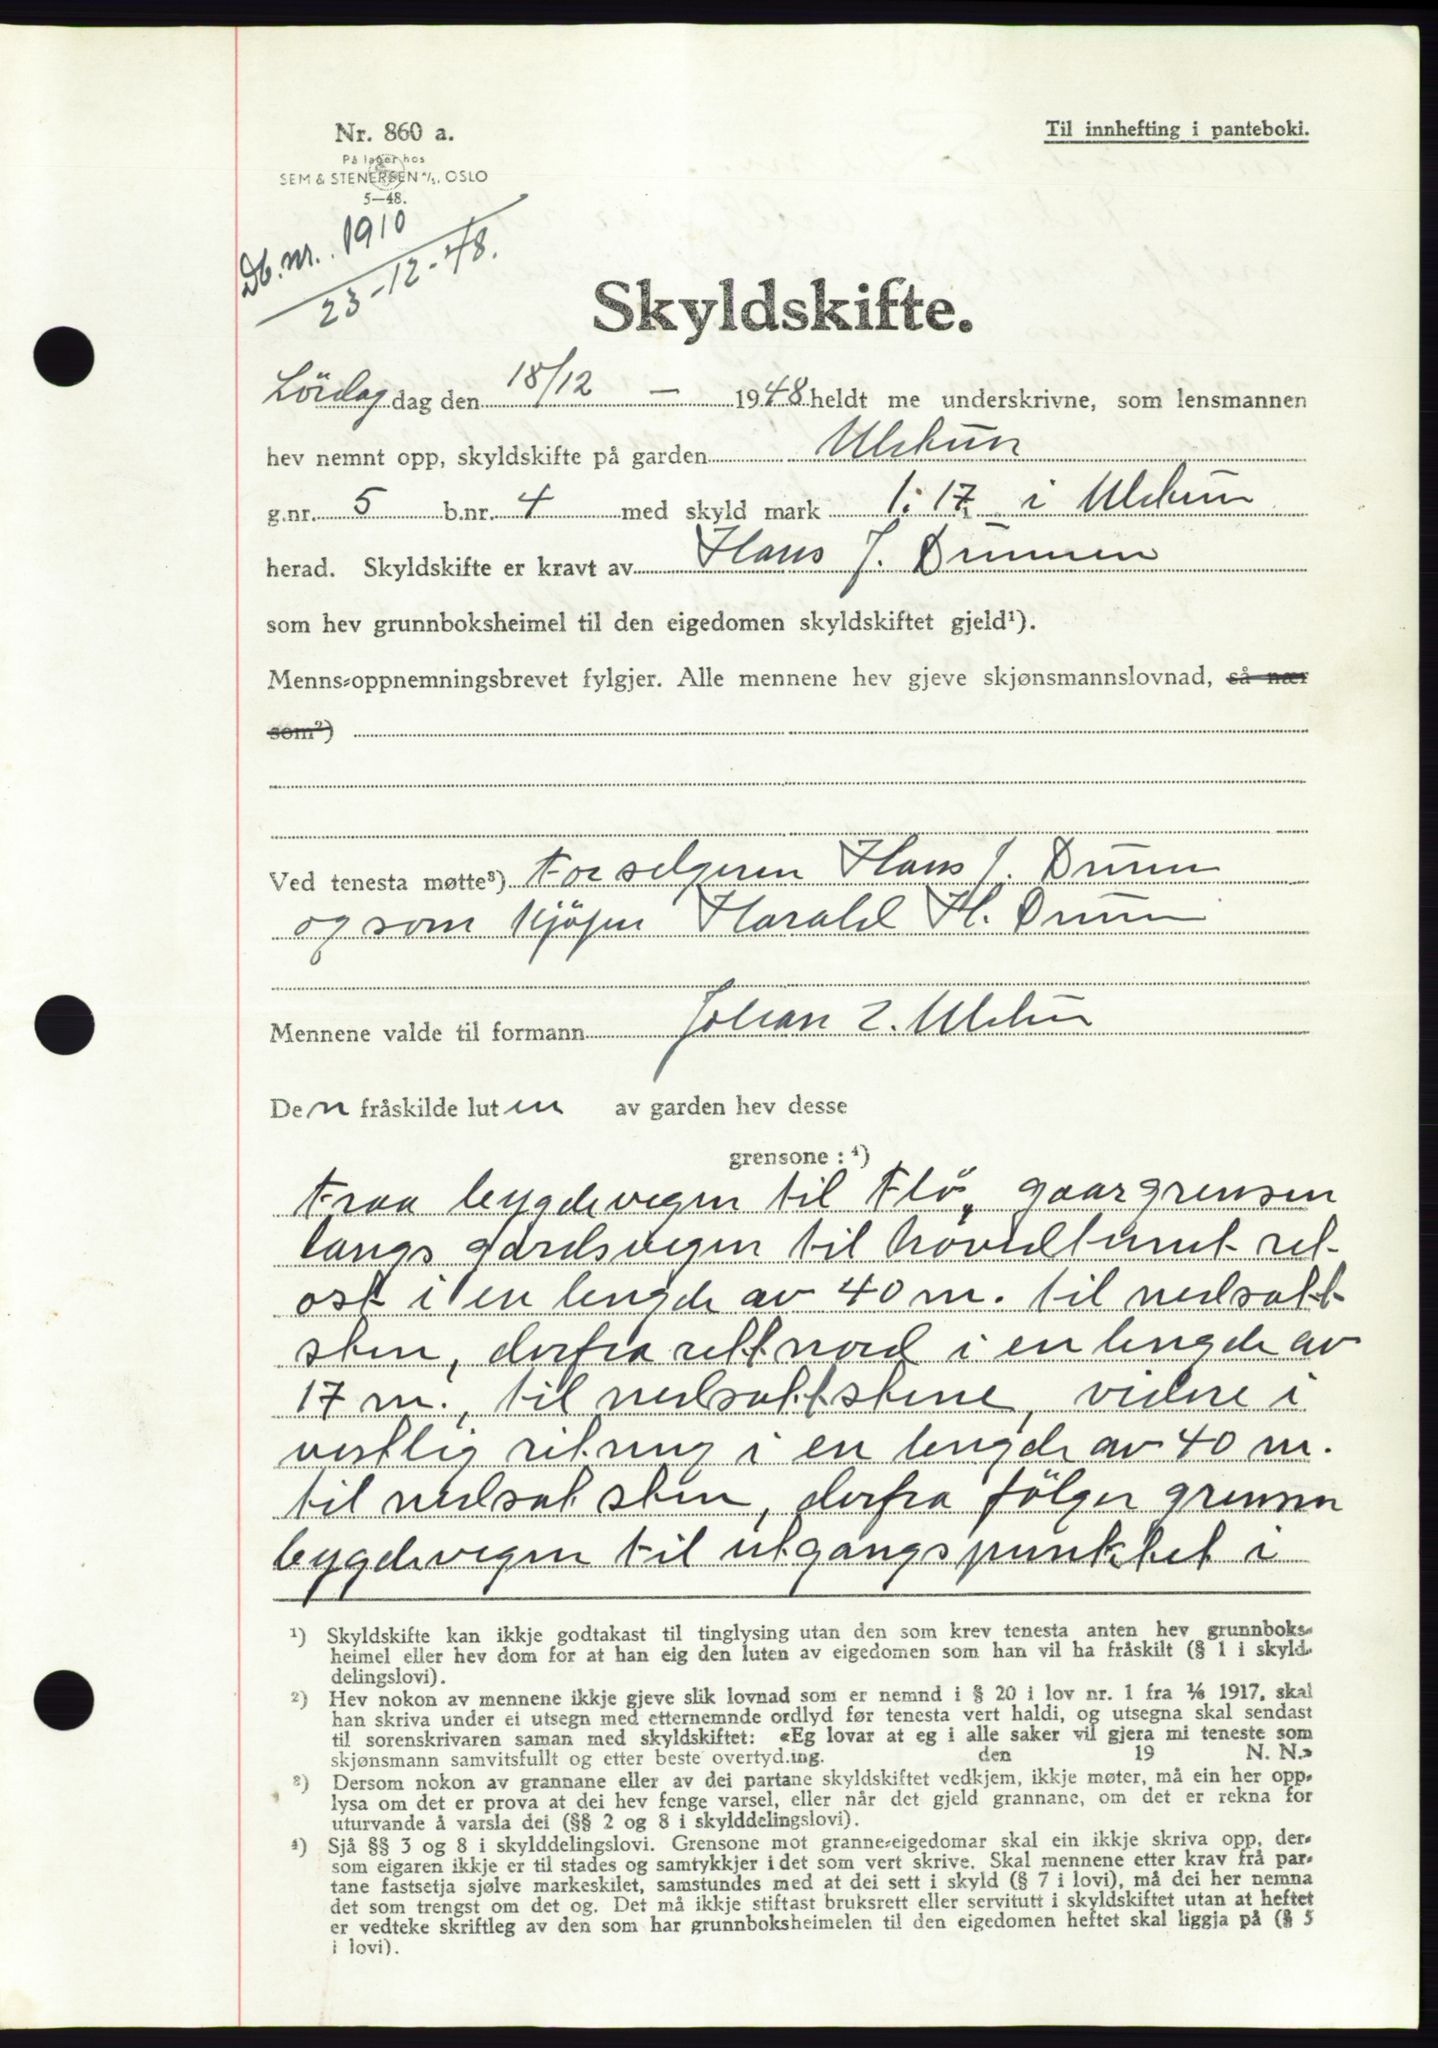 Nr. 860 a.
Til innhefting i panteboki.
På lager hos
SEM & STENERSEN A/S, OSLO
5—48.
Db. nr. 1910
23-12-48.
Skyldskifte.
Lördag dag den 18/12 — 1948 heldt me underskrivne, som lensmannen
hev nemnt opp, skyldskifte på garden Ulstein
g.nr. 5 b.nr. 4 med skyld mark 1.17 i Ulstein
herad. Skyldskifte er kravt av Hans J.
som hev grunnboksheimel til den eigedomen skyldskiftet gjeld¹).
Menns-oppnemningsbrevet fylgjer. Alle mennene hev gjeve skjønsmannslovnad, så nær
som²)
Ved tenesta møtte³) For selgeren Hans J.
og som kjöper Harald H.
Mennene valde til formann Johan Z. Ulstein
Den fråskilde luten av garden hev desse
grensone : ⁴)
Fraa bygdevegen til Flö, gaar grensen
langs gardsvegen til hovedtunet ret
ost i en lengde av 40 m. til nedsatt
sten, derfra rett nord i en lengde av
17 m., til nedsatt stene, videre i
vestlig retning i en lengde av 40 m.
til nedsat sten, derfra fölger grensen
bygdevegen til utgangspunktet i
¹) Skyldskifte kan ikkje godtakast til tinglysing utan den som krev tenesta anten hev grunnboks-
heimel eller hev dom for at han eig den luten av eigedomen som han vil ha fråskilt (§ 1 i skyld-
delingslovi).
²) Hev nokon av mennene ikkje gjeve slik lovnad som er nemnd i § 20 i lov nr. 1 fra 1/6 1917, skal
han skriva under ei utsegn med etternemnde ordlyd før tenesta vert haldi, og utsegna skal sendast
til sorenskrivaren saman med skyldskiftet: «Eg lovar at eg i alle saker vil gjera mi teneste som
skjønsmann samvitsfullt og etter beste overtyding. den 19 N. N.»
³) Dersom nokon av grannane eller av dei partane skyldskiftet vedkjem, ikkje møter, må ein her opp-
lysa om det er prova at dei hev fenge varsel, eller når det gjeld grannane, om det er rekna for
uturvande å varsla dei (§§ 2 og 8 i skylddelingslovi).
⁴) Sjå §§ 3 og 8 i skylddelingslovi. Grensone mot granne-eigedomar skal ein ikkje skriva opp, der-
som eigaren ikkje er til stades og samtykkjer i det som vert skrive. Skal mennene etter krav frå par-
tane fastsetja sjølve markeskilet, samstundes med at dei sett i skyld (§ 7 i lovi), må dei her nemna
det som trengst om det og. Det må ikkje stiftast bruksrett eller servitutt i skyldskiftet utan at heftet
er vedteke skriftleg av den som har grunnboksheimelen til den eigedomen heftet skal liggja på (§ 5
i lovi).